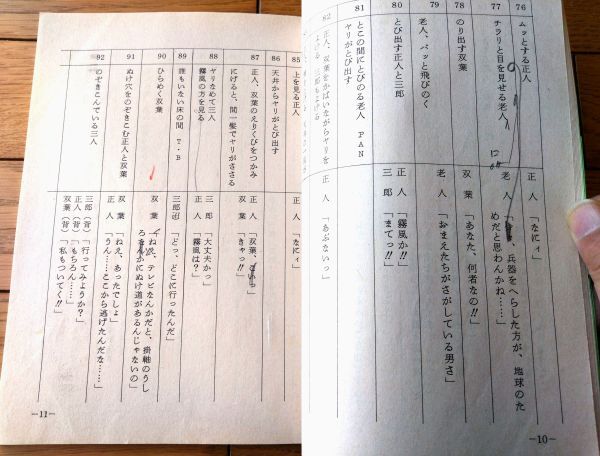 76
ムッとする正人
正人「なにィ」
77
チラリと目を見せる老人
老人「
、兵器をへらした方が、地球のた
めだと思わんかね……」
78
のり出す双葉
双葉「あなた、何者なの!!」
79
老人、パッと飛びのく
老人「おまえたちがさがしている男さ」
80
とび出す正人と三郎
正人「霧風か!!」
三郎「まてっ!!」
81
とこの間にとびのる老人 PAN
ヤリがとび出す
82
正人、双葉をかばいながらヤリを
よける 三郎もよける
正人「あぶないっ」
－10－
85
上を見る正人
正人「なにィ」
86
天井からヤリがとび出す
87
正人、双葉のえりくびをつかみ
にげると、間一髪でヤリがささる
正人「双葉、
双葉「きゃっ!!」
88
ヤリなめて三人
霧風の方を見る
三郎「大丈夫かっ」
正人「霧風は？」
89
誰もいない床の間 T・B
三郎「どっ、どこに行ったんだ」
90
ひらめく双葉
双葉「
テレビなんかだと、掛軸のうし
ろなんかにぬけ道があるんじゃないの」
91
ぬけ穴をのぞきこむ正人と双葉
双葉「ねえ、あったでしょ」
正人「うん……ここから逃げたんだな……」
92
のぞきこんでいる三人
三郎（背）「行ってみようか？」
正人（背）「もちろん……」
双葉（背）「私もついてく!!」
－11－